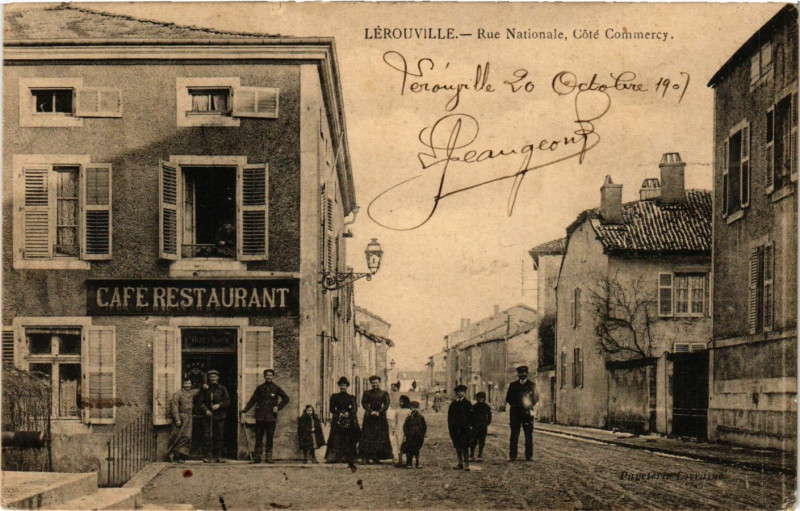 LÉROUVILLE.— Rue Nationale, Côté Commercy.
Lérouville 20 Octobre 1907
CAFÉ RESTAURANT
Papeterie Lorraine